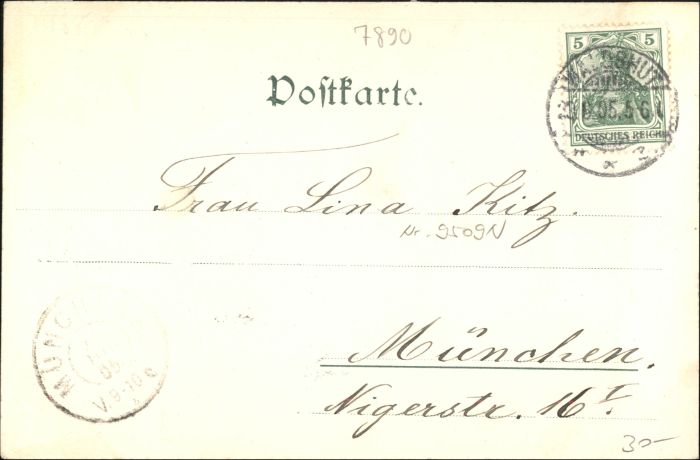 7890
5 5
DEUTSCHES REICH
WALDSHUT
Postkarte.
Frau Lina Kitz.
Nr. 9509N
München.
Nigerstr. 16 I.
MÜNCH
V 9-10
30-